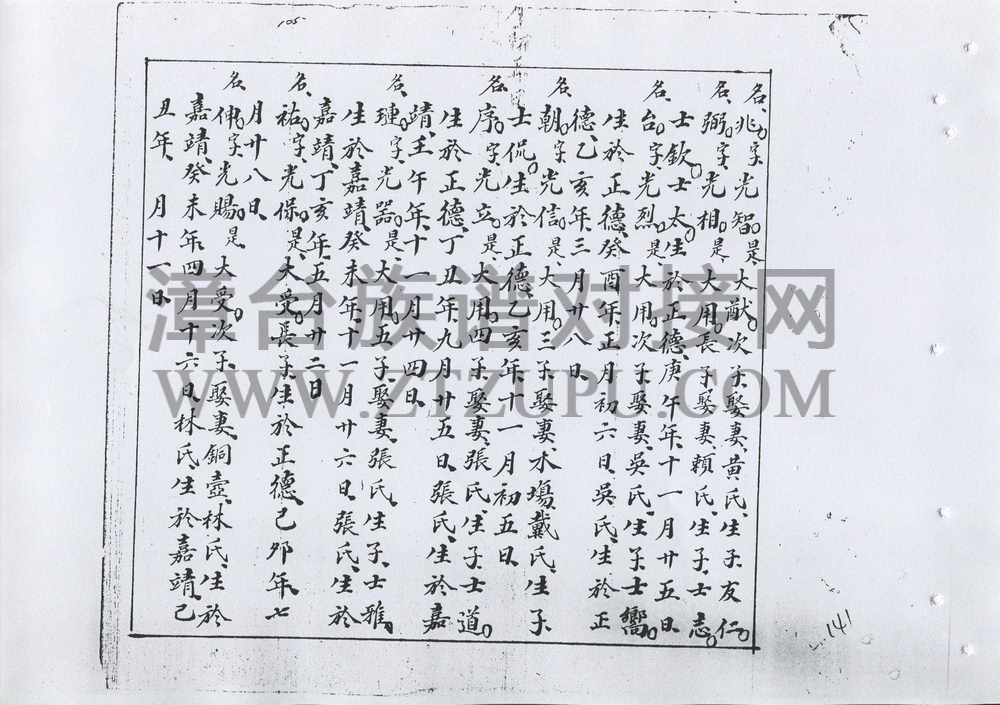 105
名、兆。字光智。是、大猷。次子、娶妻、黃氏、生子、友仁。
名、弼。字、光相。是、大用。長子、娶妻、賴氏、生子、士志。
士欽。士太。生於正德、庚午年、十一月廿五日、
名、台。字、光烈。是、大用、次子、娶妻、吳氏、生子、士嚮。
生於正德、癸酉年、正月初六日、吳氏、生於正
德、乙亥年、三月廿八日、
名、朝。字光信。是、大用、三子、娶妻、水塲、戴氏、生子、
士侃。生於正德、乙亥年、十一月初五日、
名、序。字、光立。是、大用、四子、娶妻、張氏、生子、士道。
生於正德、丁丑年、九月廿五日、張氏、生於嘉
靖、壬午年、十一月廿四日、
名、璉。字、光器。是、大用。五子、娶妻、張氏、生子、士雅、
生於嘉靖、癸未年、十一月廿六日、張氏、生於
嘉靖、丁亥年、五月廿二日
名、祐。字、光保。是、大受。長子、生於正德、己卯年、七
月廿八日、
名、俥。字、光賜。是、大受。次子、娶妻、銅壺、林氏、生於
嘉靖、癸未年、四月十六日、林氏、生於嘉靖、己
丑年、 月十一日、
漳台族谱对接网
WWW.ZTZUPU.COM
141